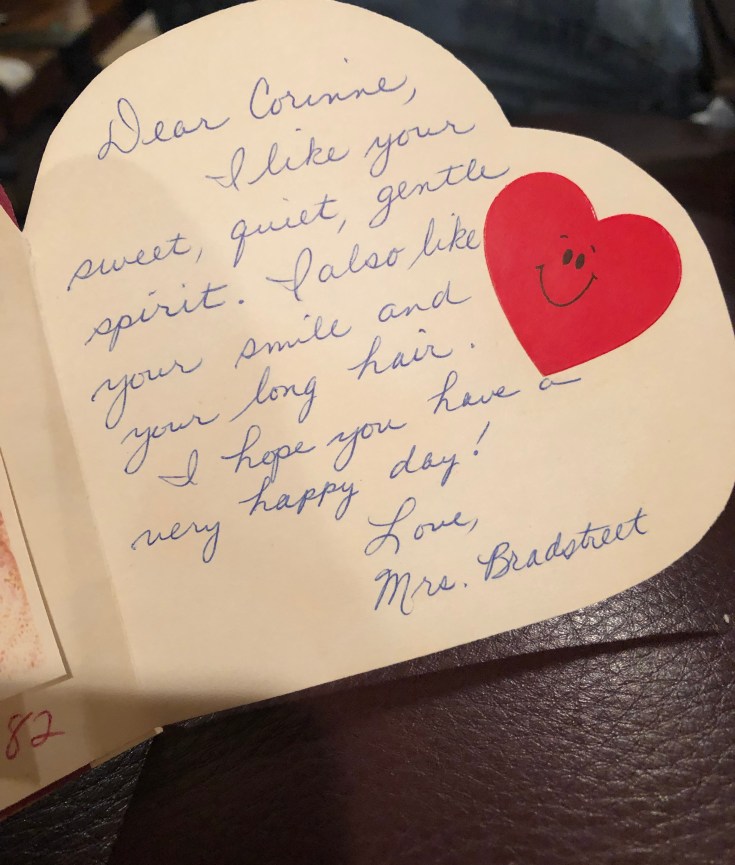 Dear Corinne,
I like your
sweet, quiet, gentle
spirit. I also like
your smile and
your long hair.
I hope you have a
very happy day!
Love,
Mrs. Bradstreet
82